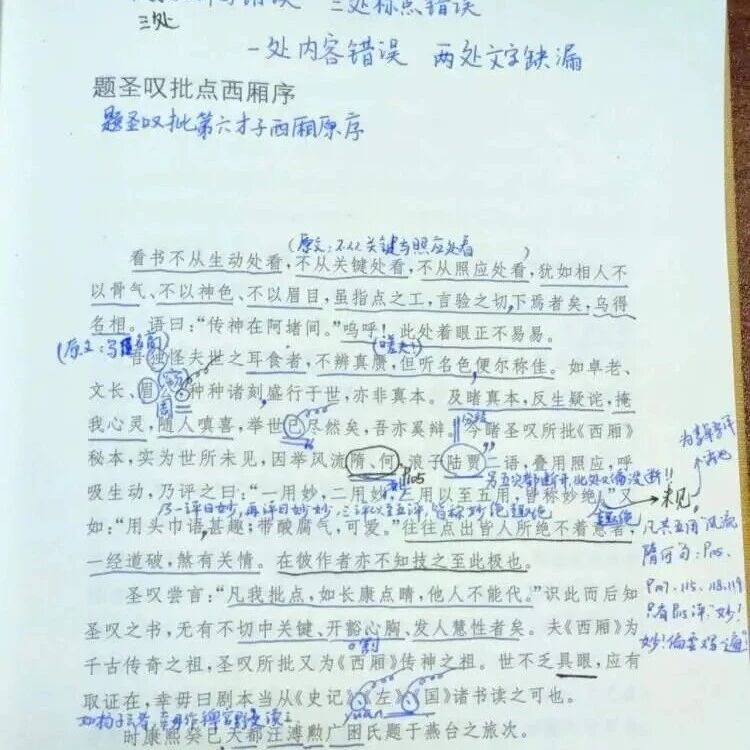 三处标点错误
三处
一处内容错误 两处文字缺漏
题圣叹批点西厢序
题圣叹批第六才子西厢原序
(原文:不从关键与照应处看)
看书不从生动处看,不从关键处看,不从照应处看,犹如相人不
以骨气、不以神色、不以眉目,虽指点之工,言验之切,下焉者矣,乌得
名相。语曰:“传神在阿堵间。”呜呼!此处着眼正不易易。
吾独怪夫世之耳食者,不辨真赝,但听名色,便尔称佳。如卓老、
文长、眉公种种诸刻盛行于世,亦非真本。及睹真本,反生疑诧,掩
我心灵,随人嗔喜,举世已尽然矣,吾亦奚辩。今睹圣叹所批《西厢》
秘本,实为世所未见,因举风流隋、何,浪子陆贾二语,叠用照应,呼
吸生动,乃评之曰:“一用妙,二用妙,三用以至五用,皆称妙绝。”又
乃一评曰妙,再评曰妙妙,三评以至五评,皆称妙绝趣绝
如:“用头巾语甚趣;带酸腐气,可爱。”往往点出皆人所绝不着意者,
一经道破,煞有关情。在彼作者亦不知技之至此极也。
圣叹尝言:“凡我批点,如长康点睛,他人不能代。”识此而后知
圣叹之书,无有不切中关键、开豁心胸、发人慧性者矣。夫《西厢》为
千古传奇之祖,圣叹所批又为《西厢》传神之祖。世不乏具眼,应有
取证在,幸毋曰剧本当从《史记》《左》《国》诸书读之可也。
时康熙癸巳天都汪溥勲广囷氏题于燕台之旅次。
未见
凡共五用“风流
隋何”句:P105、
P107、115、118、119
只有P105评“妙!